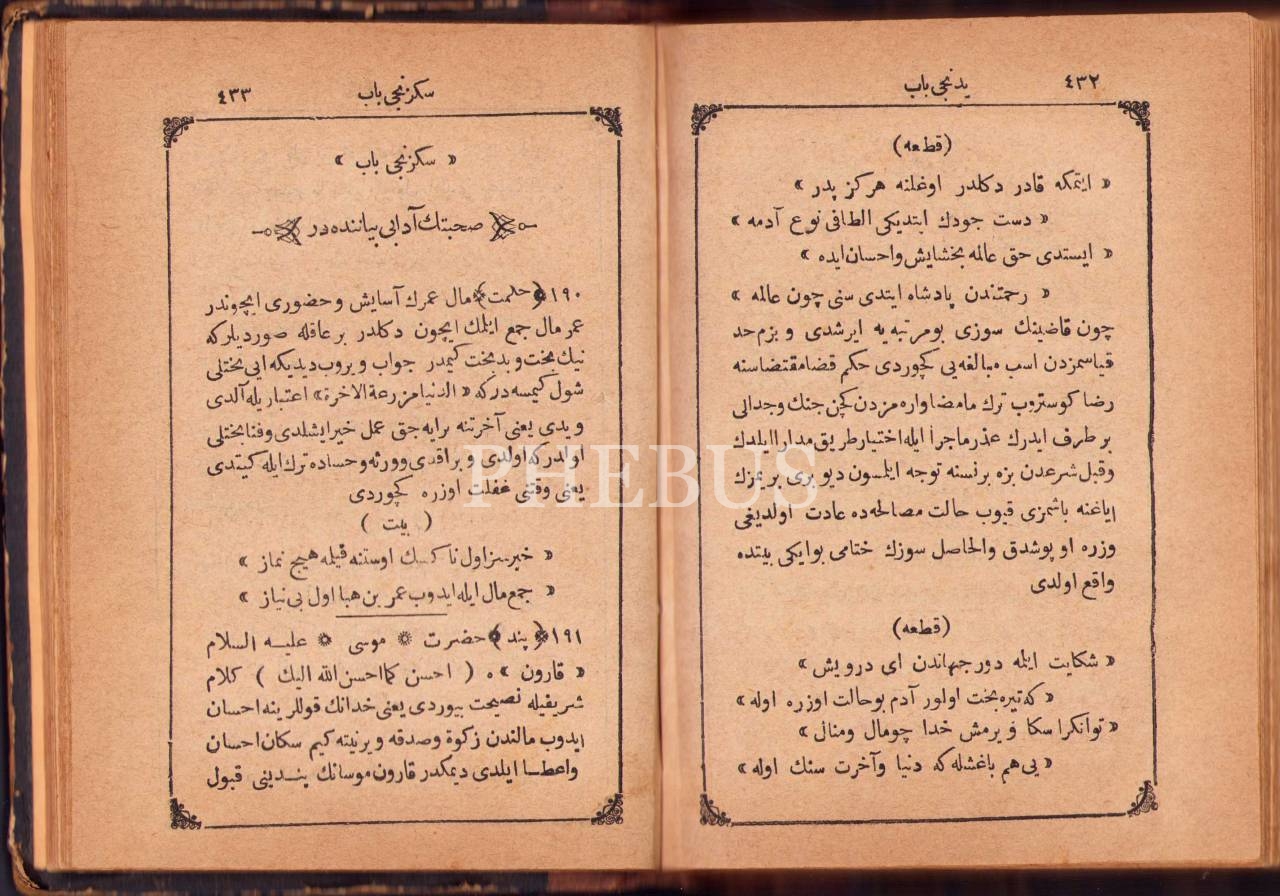 ٤٣٢
يدنجى باب
(قطعه)
« ايتمكه قادر دكلدر اوغلنه هركز پدر »
« دست جودك ايتديكى الطافى نوع آدمه »
« ايستدى حق عالمه بخشايش واحسان ايده »
« رحمتندن پادشاه ايتدى سنى چون عالمه »
چون قاضينك سوزى بومرتبه يه ايرشدى و بزم حد
قياسمزدن اسب مبالغه يى كچوردى حكم قضا مقتضاسنه
رضا كوستروب ترك مامضا واره مزدن كچن جنك وجدالى
بر طرف ايدرك عذر ماجرا ايله اختيار طريق مدارا ايلدك
وقيل شرعدن بزه برنسنه توجه ايلسون ديو برى بريمزك
اياغنه باشمزى قيوب حالت مصالحه ده عادت اولديغى
وزره اوپوشدق والحاصل سوزك ختامى بوايكى بيتده
واقع اولدى
(قطعه)
« شكايت ايلمه دور جهاندن اى درويش »
« كه تيره بخت اولور آدم بوحالت اوزره اوله »
« توانكرا سكا ويرمش خدا چومال ومنال »
« يى هم باغشله كه دنيا وآخرت سنك اوله »
٤٣٣
سكزنجى باب
« سكزنجى باب »
صحبتك آدابى بياننده در
١٩٠ ﴿حكمت﴾ مال عمرك آسايش وحضورى ايچوندر
عمر مال جمع ايلمك ايچون دكلدر بر عاقله صورديلركه
نيك بخت وبد بخت كيمدر جواب ويروب ديديكه ايى بختلى
شول كيمسه دركه « الدنيا مزرعة الاخرة » اعتباريله آلدى
ويدى يعنى آخرتنه برايه جق عمل خير ايشلدى وفنا بختلى
اولدركه اولدى وبراقدى وورثه وحساده ترك ايله كيتدى
يعنى وقتنى غفلت اوزره كچوردى
( بيت )
« خيرسز اول ناكسك اوستنه قيلمه هيچ نماز »
« جمع مال ايله ايدوب عمرين هبا اول بى نياز »
١٩١ ﴿پند﴾ حضرت موسى عليه السلام
« قارون » ه ( احسن كما احسن الله اليك ) كلام
شريفيله نصيحت بيوردى يعنى خدانك قوللرينه احسان
ايدوب مالندن زكوة وصدقه ويرنيته كيم سكا ن احسان
واعطا ايلدى ديمكدر قارون موسانك پندينى قبول
PHEBUS